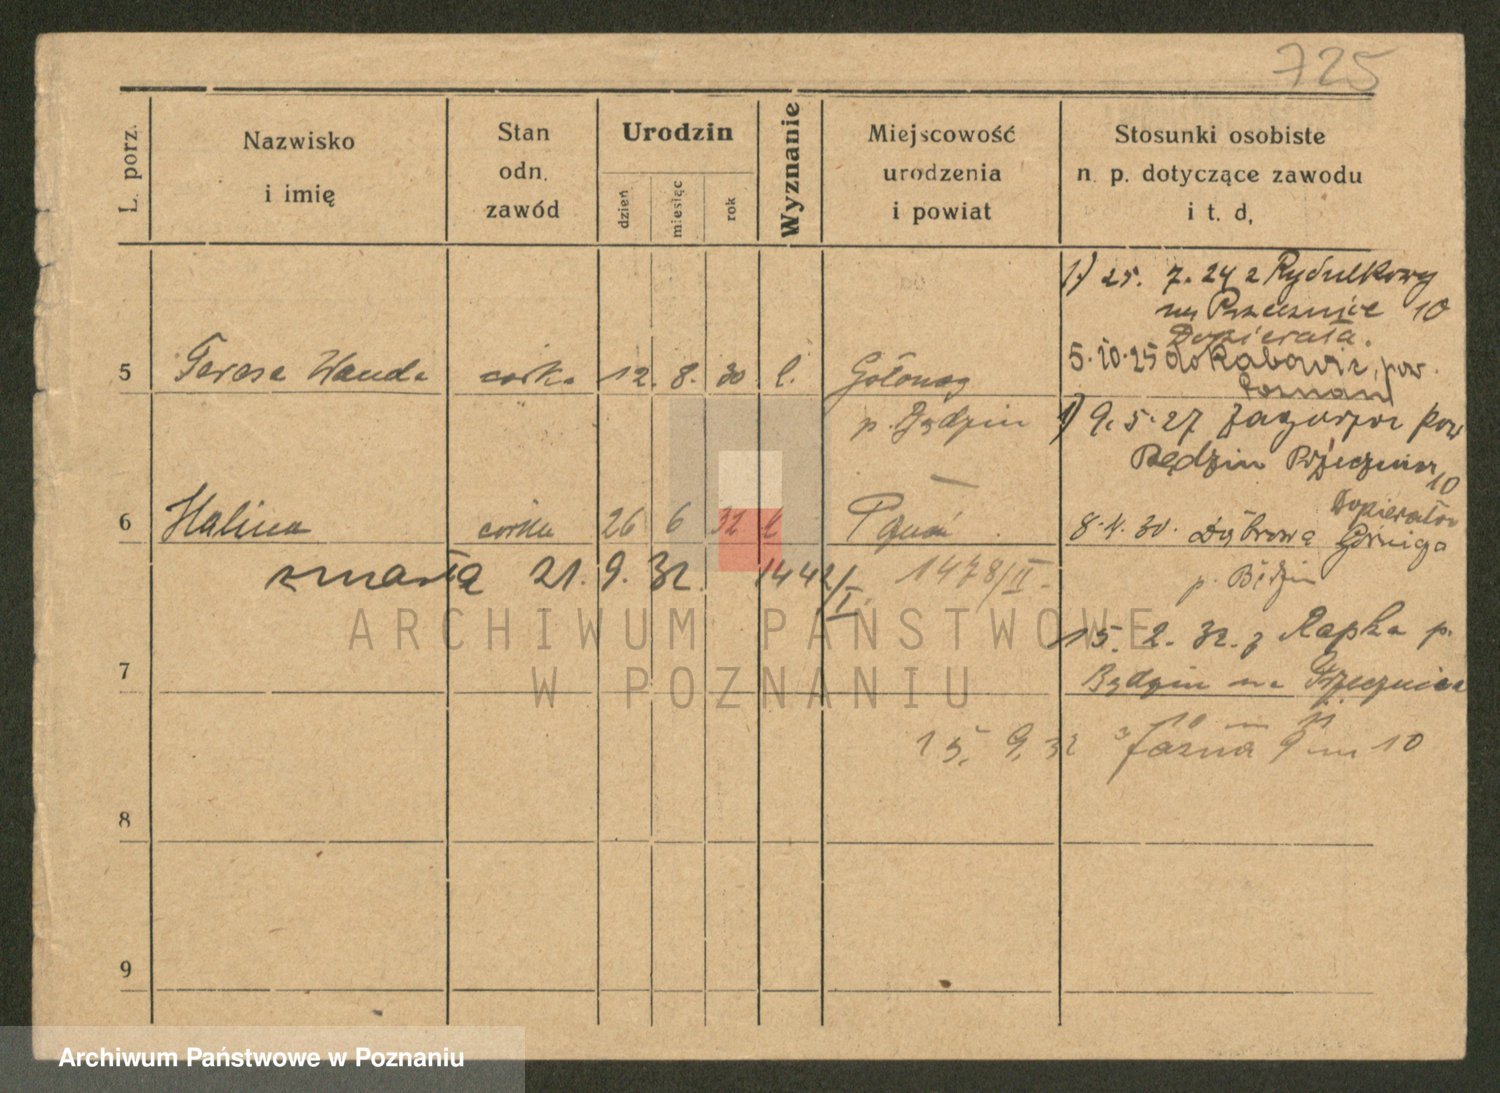 725
L. porz.
Nazwisko
i imię
Stan
odn.
zawód
Urodzin
dzień
miesiąc
rok
Wyznanie
Miejscowość
urodzenia
i powiat
Stosunki osobiste
n. p. dotyczące zawodu
i t. d.
1) 25. 7. 24 z
na Przecznicę 10
Dopierała.
5 Teresa Wanda córka 12. 8. 30
Gołonog
5.10.25 do pow.
Poznań
p. Będzin
1) 9. 5. 27 Zagórza pow
Będzin Przecznica 10
6 Halina córka 26 6 32
Poznań
8.4.30. Dąbrowa Górnicza
p. Będzin
zmarła 21. 9. 32. 1442/I. 1478/II.
ARCHIWUM PAŃSTWOWE
W POZNANIU
15. 2. 32. z p.
Będzin na Przecznica
7
10 m 11
15. 9. 32 Jasna 9 m 10
8
9
Archiwum Państwowe w Poznaniu